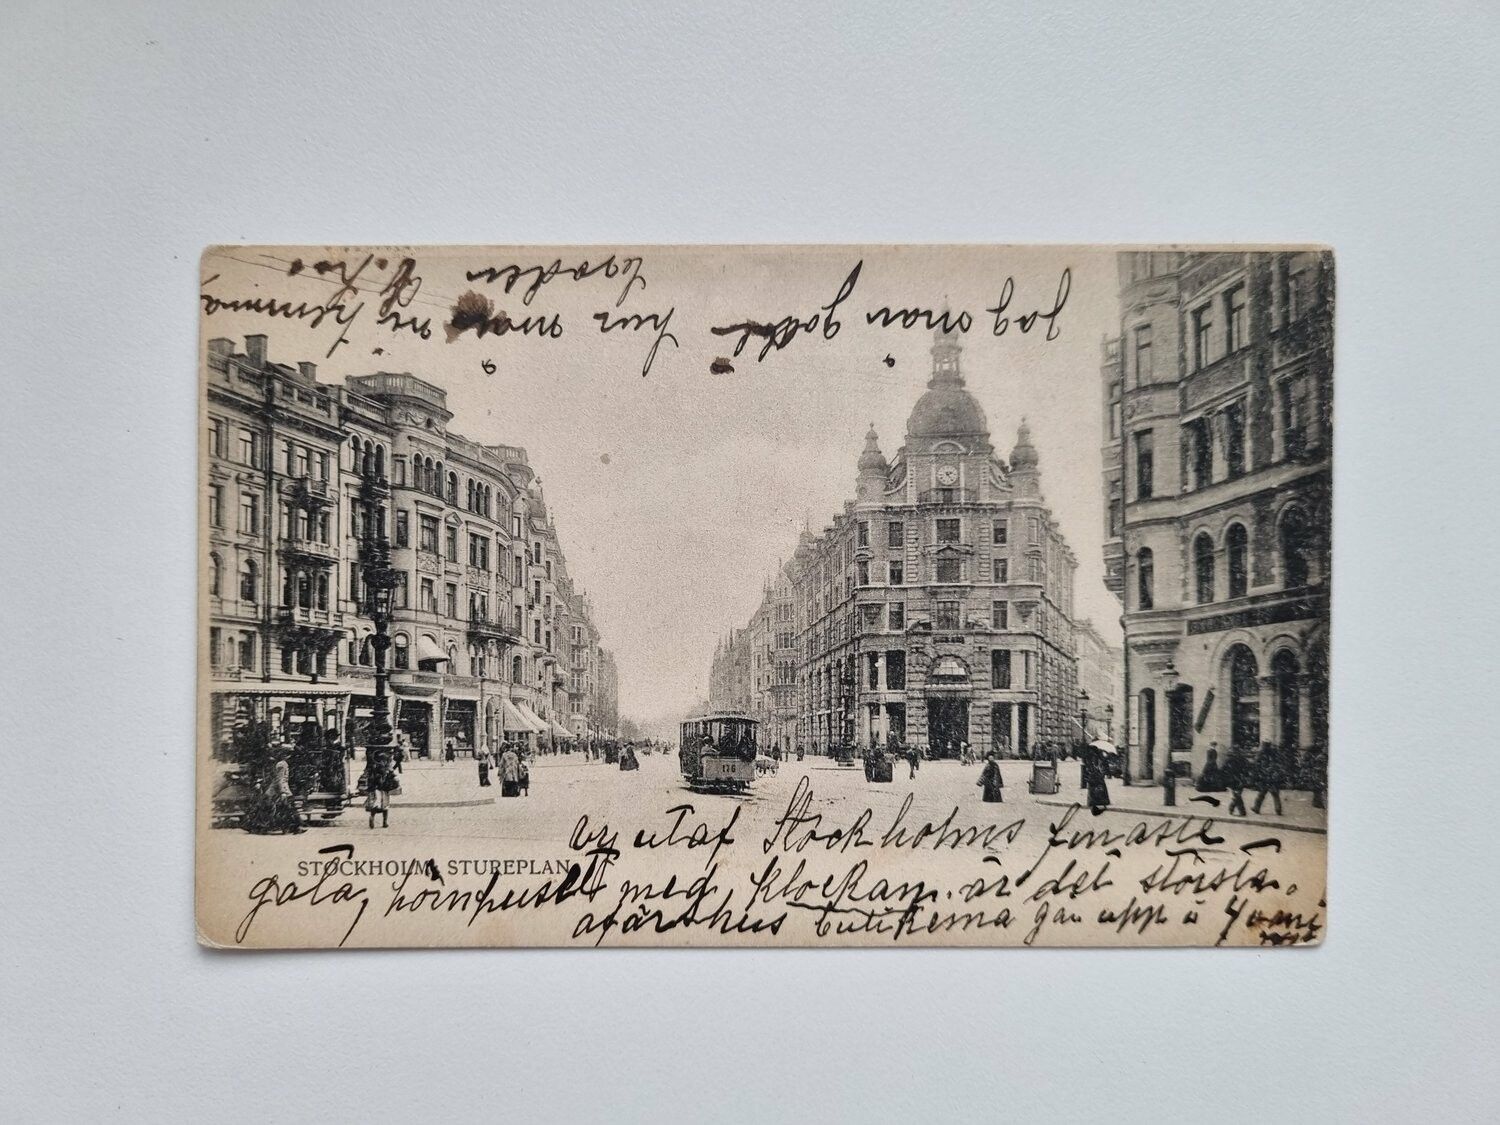 Jag mår godt hur mår ni hemma
STOCKHOLM, STUREPLAN
vy utaf Stockholms finaste
gata, hörnhuset med klockan är det största
afärshus butikerna går upp i 4
176